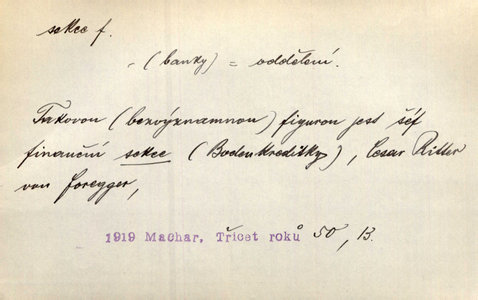 sekce f.
- (banky) = oddělení.
Takovou (bezvýznamnou) figurou jest šéf
finanční sekce (Bodenkreditky), Cesar Ritter
von Foregger,
1919 Machar, Třicet roků 50, B.